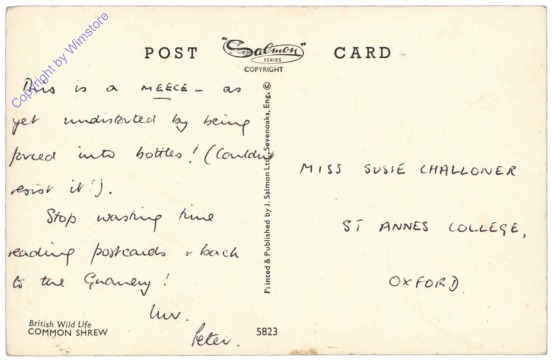 POST "Salmon" CARD
SERIES
COPYRIGHT
Copyright by Wimstore
This is a MEECE – as
yet undistorted by being
forced into bottles! (Couldn't
resist it!).
Stop wasting time
reading postcards & back
to the Granary!
Luv.
Peter.
British Wild Life
COMMON SHREW
5823
Printed & Published by J. Salmon Ltd., Sevenoaks, Eng. ©
MISS SUSIE CHALLONER
ST ANNES COLLEGE,
OXFORD.